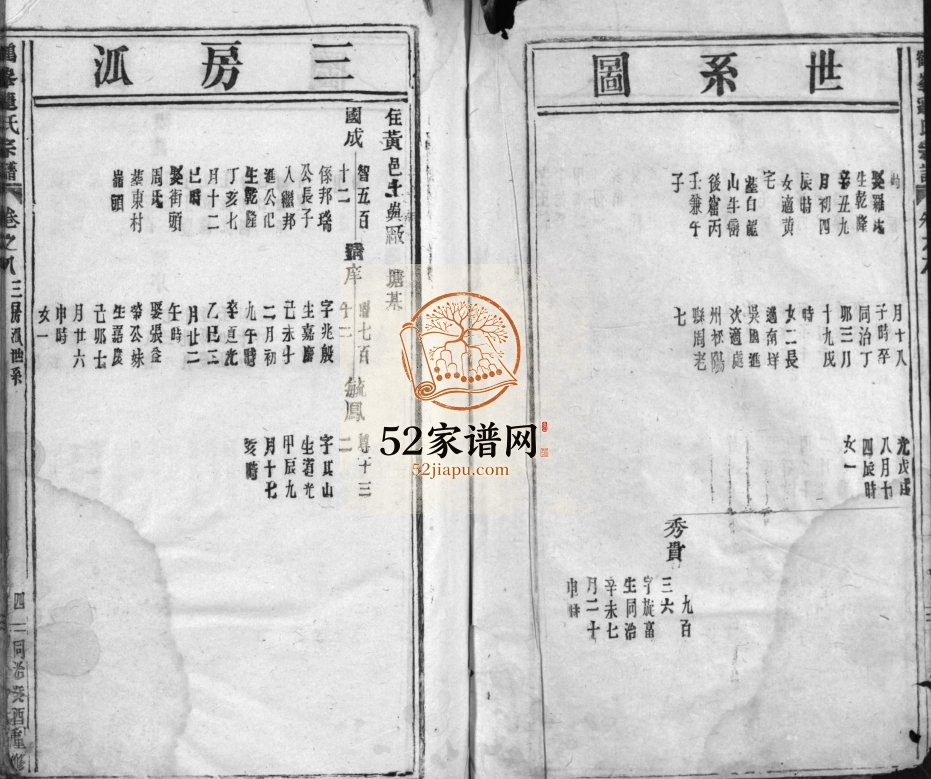 世系圖
時
娶羅氏
生乾隆
辛丑九
月初四
辰時
女適黃
宅
墓白龍
山牛
後
壬兼午
子
月十八
子時卒
同治丁
卯三月
十九戌
時
女二長
適南坪
吳
次適處
州松陽
縣周老
七
光戊戌
八月十
四辰時
女一
秀貴
九百
三六
字旋富
生同治
辛未七
月二十
申時
三房派
住黃邑
國成
智五百
十二
係邦瑞
公長子
入繼邦
進公祀
生乾隆
丁亥七
月十二
巳時
娶街頭
周氏
墓東村
嶺頭
七百
字兆殷
生嘉慶
己未十
二月初
九午時
卒道光
乙巳三
月廿二
午時
娶張益
公妹
生嘉慶
己卯十
月廿六
申時
女一
毓鳳
二
字其山
生道光
甲辰九
月十七
亥時
氏宗譜
卷之八
三房派世系
同治癸酉重修
52家谱网
52jiapu.com